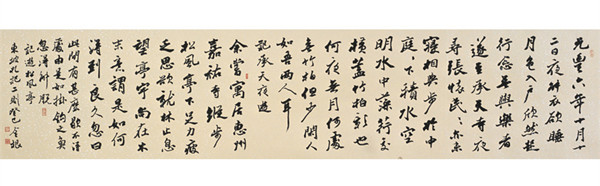 元豐六年十月十
二日夜解衣欲睡
月色入户欣然起
行念無與樂者
遂至承天寺
尋張懷民亦未
寢相與步於中
庭〻下積水空
明水中藻荇交
橫蓋竹柏影也
何夜無月何處
無竹柏但少閒人
如吾兩人耳
記承天夜遊
余嘗寓居惠州
嘉祐寺縱步
松風亭下足力疲
乏思欲就林止息
望亭宇尚在木
末意謂是如何
得到良久忽曰
此間有甚麽歇不得
處由是如掛鉤之魚
忽得解脱
記遊松風亭
東坡札記二則